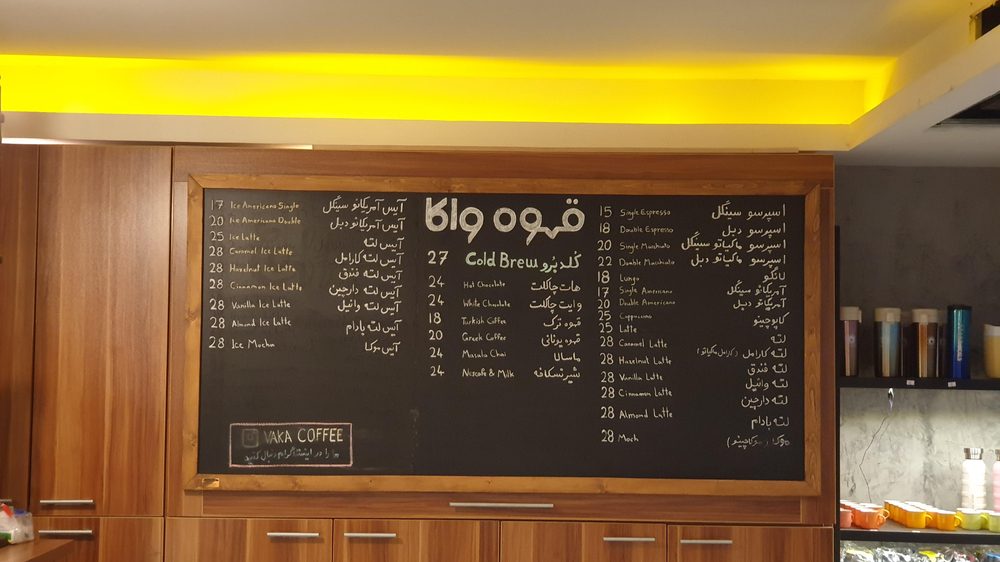 17 Ice Americano Single آیس آمریکانو سینگل
20 Ice Americano Double آیس آمریکانو دبل
25 Ice Latte آیس لته
28 Caramel Ice Latte آیس لته کارامل
28 Hazelnut Ice Latte آیس لته فندق
28 Cinnamon Ice Latte آیس لته دارچین
28 Vanilla Ice Latte آیس لته وانیل
28 Almond Ice Latte آیس لته بادام
28 Ice Mocha آیس موکا
VAKA COFFEE
ما را در اینستاگرام دنبال کنید
قهوه واکا
27 Cold Brew کلد برو
24 Hot Chocolate هات چاکلت
24 White Chocolate وایت چاکلت
18 Turkish Coffee قهوه ترک
20 Greek Coffee قهوه یونانی
24 Masala Chai ماسالا
24 Nescafe & Milk شیر نسکافه
15 Single Espresso اسپرسو سینگل
18 Double Espresso اسپرسو دبل
20 Single Macchiato اسپرسو ماکیاتو سینگل
22 Double Macchiato اسپرسو ماکیاتو دبل
18 Lungo لانگو
17 Single Americano آمریکانو سینگل
20 Double Americano آمریکانو دبل
25 Cappuccino کاپوچینو
25 Latte لته
28 Caramel Latte لته کارامل (کارامل ماکیاتو)
28 Hazelnut Latte لته فندق
28 Vanilla Latte لته وانیل
28 Cinnamon Latte لته دارچین
28 Almond Latte لته بادام
28 Moch موکا (موکاچینو)